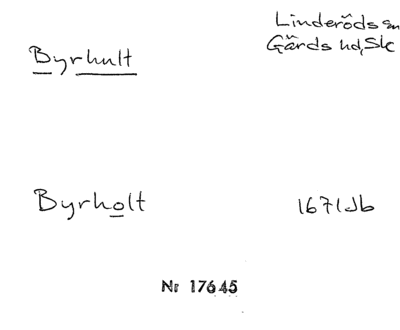 Linderöds sn
Byrhult
Gärds hd, Sk
Byrholt 1671 Jb
Nr 17645